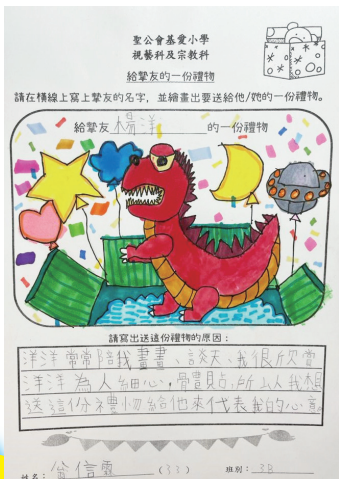 聖公會基愛小學
視藝科及宗教科
給摯友的一份禮物
請在橫線上寫上摯友的名字，並繪畫出要送給他/她的一份禮物。
給摯友 楊洋 的一份禮物
請寫出送這份禮物的原因：
洋洋常常陪我畫畫、談天，我很欣賞
洋洋為人細心，體貼，所以我想
送這份禮物給他來代表我的心意
姓名： 翁信 (33) 班別： 3B